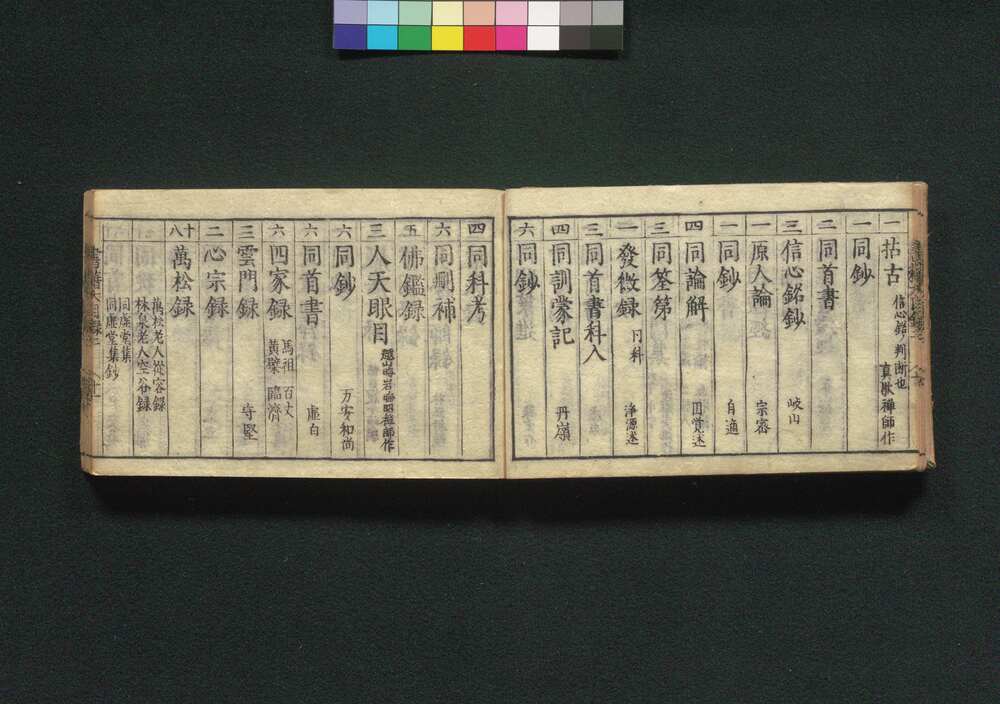 一 拈古 信心銘ノ判断也 真歇禅師作
一 同鈔
二 同首書
三 信心銘鈔 岐山
一 原人論 宗密
一 同鈔 自適
四 同論解 円賞述
三 同筌第
一 發微録 冂科 浄源述
三 同首書科入
四 同訓蒙記 丹嶺
六 同鈔
四 同科考
六 同刪補
五 佛鑑録
三 人天眼目 越山晦岩聰昭禅師作
六 同鈔 万安和尚
六 同首書 虚白
六 四家録 馬祖 百丈 黄檗 臨濟
三 雲門録 守堅
二 心宗録
十八 萬松録
萬松老人從容録
林泉老人空谷録
同虚堂集
同虚堂集鈔